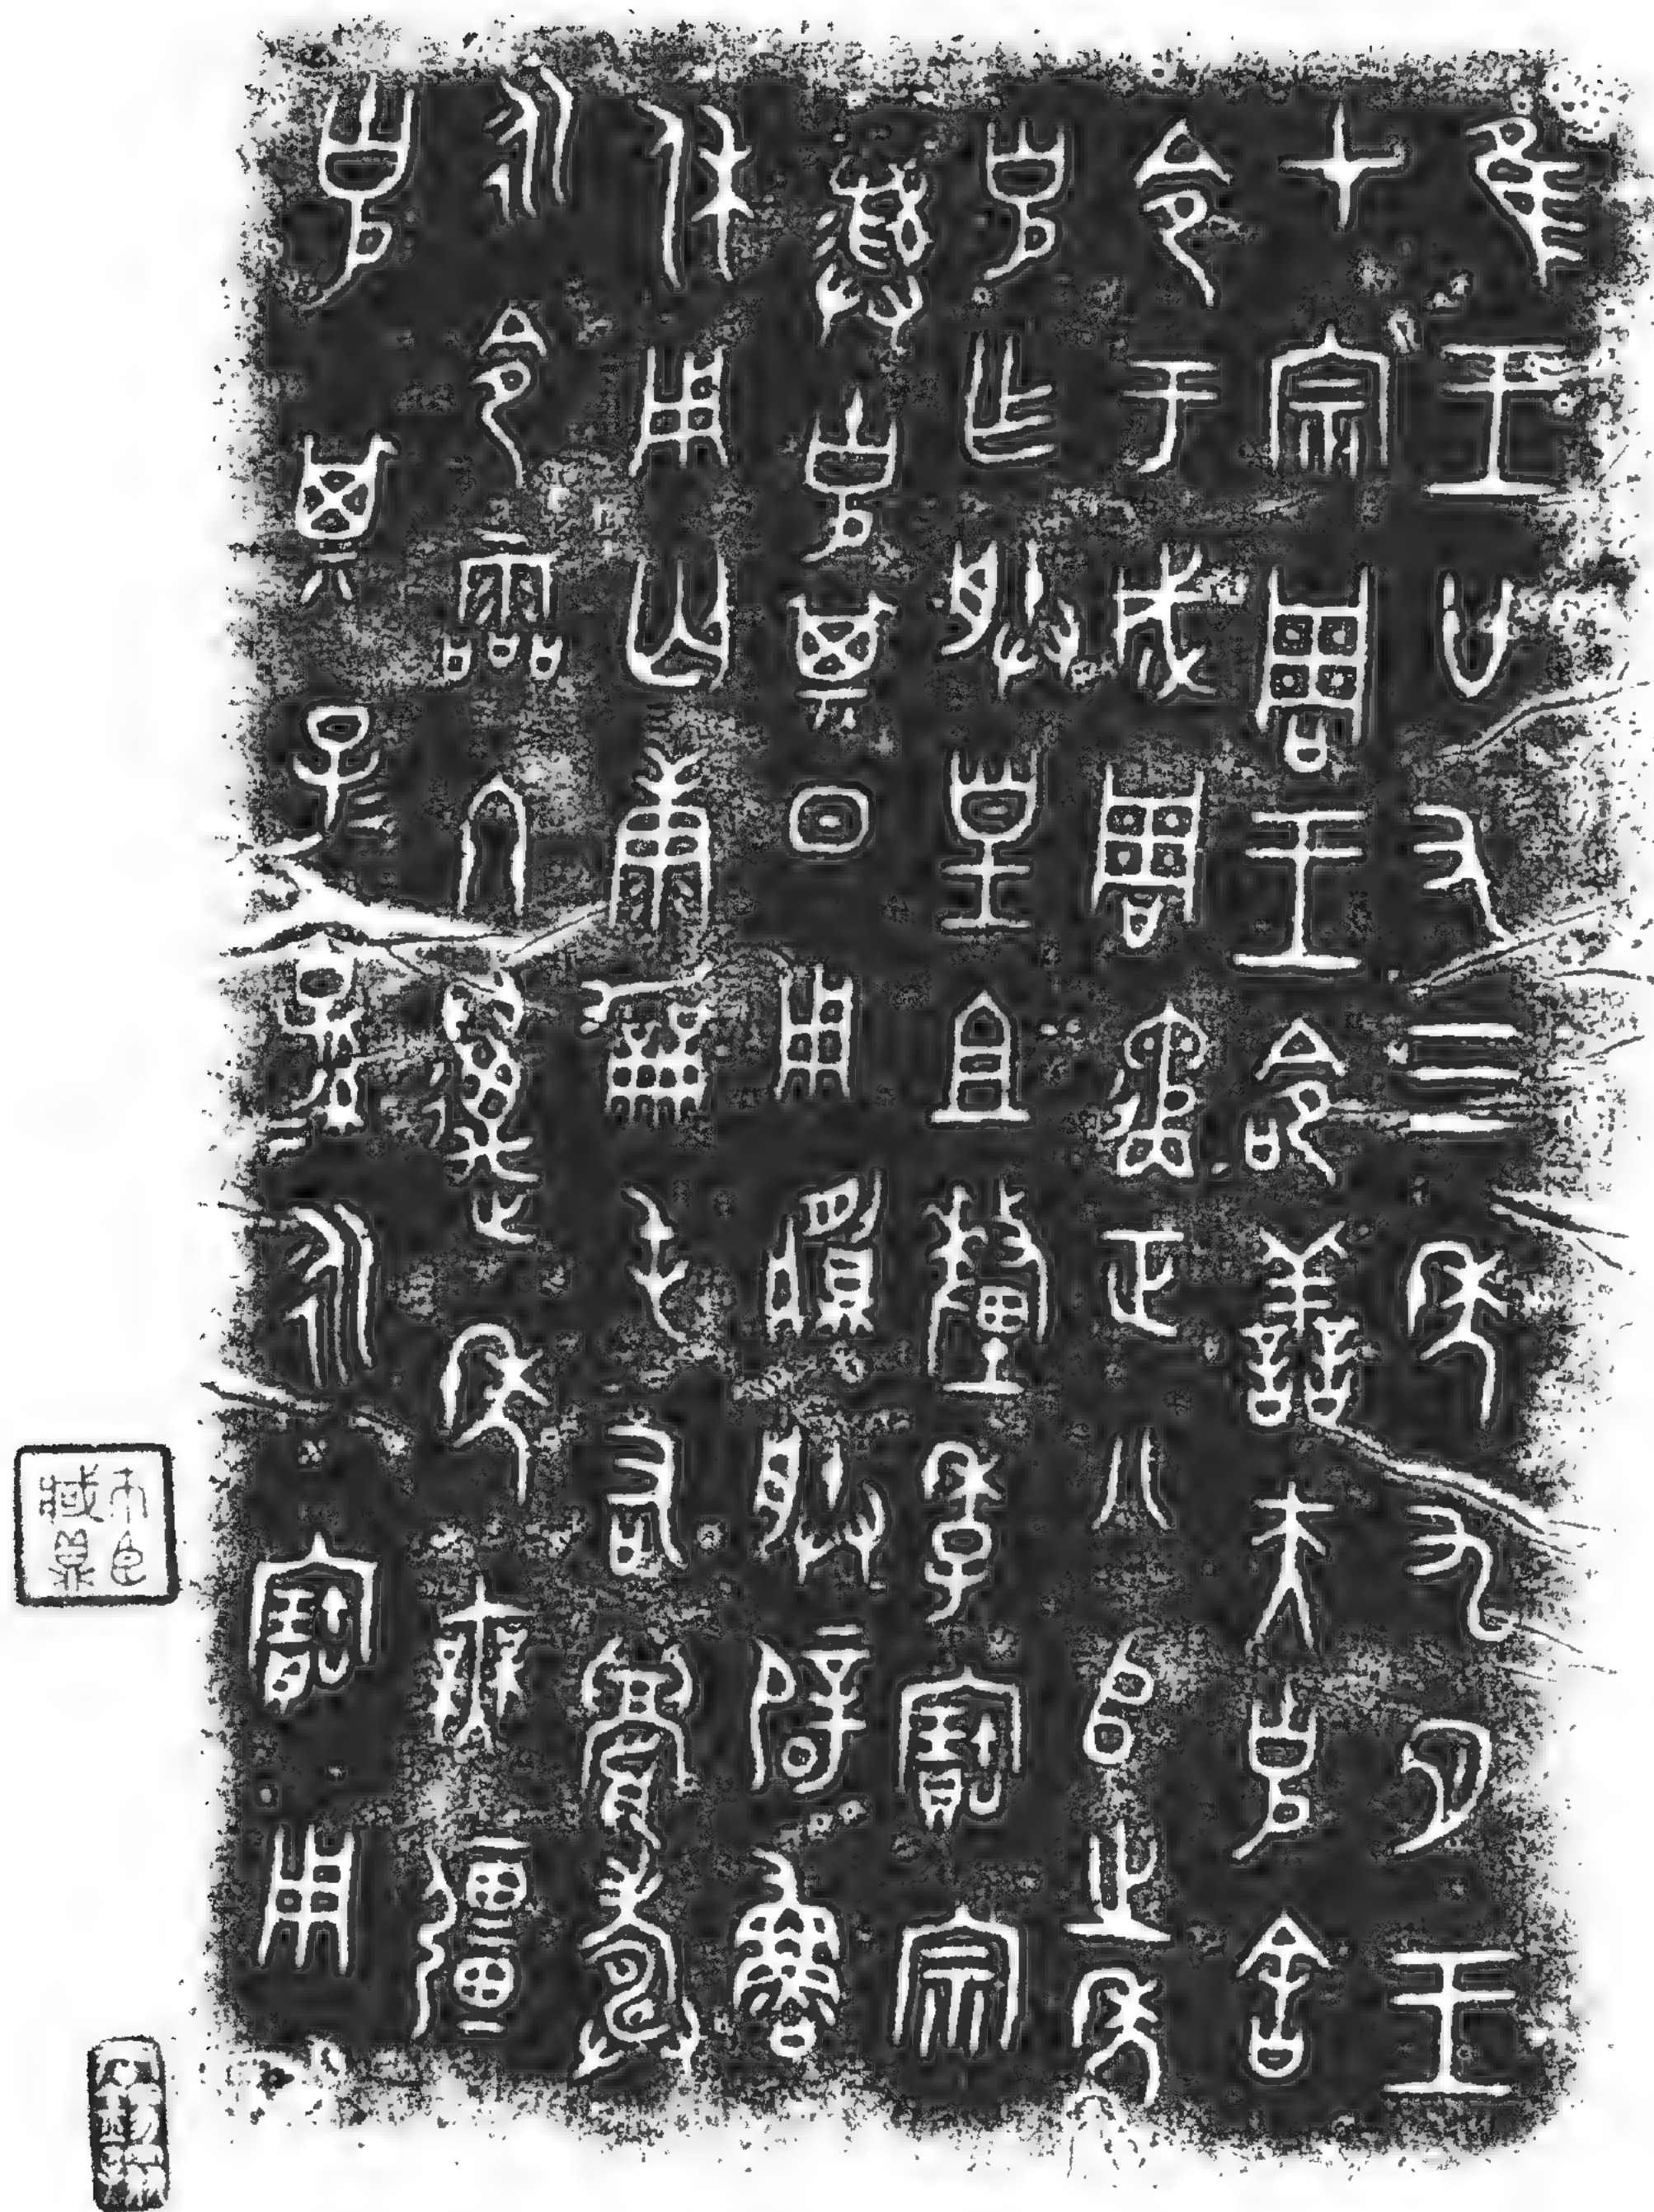 隹王廿又三年九月王
才宗周王命善夫克舍
令于成周遹正八𠂤之年
克乍朕皇且釐季寶宗
彝克其日用朕辟魯
休用匄康屯右眉壽
永令霝冬萬年無疆
克其子=孫=永寶用